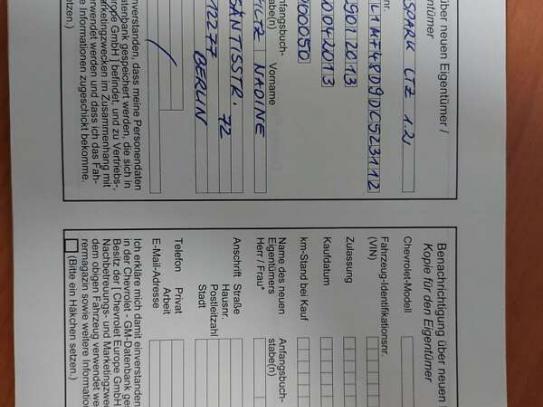 über neuen Eigentümer /
entümer
SPARK LTZ 1.2
nr.
KL1MF48D9DC523112
29012013
20042013
000050
nfangsbuch-
abe(n)
Vorname
NADINE
SANTISSTR. 72
12277
BERLIN
inverstanden, dass meine Personendaten
atenbank gespeichert werden, die sich in
urope GmbH ] befindet, und zu Vertriebs-,
arketingzwecken im Zusammenhang mit
erwendet werden und dass ich das Fah-
e Informationen zugeschickt bekomme.
etzen.)
Benachrichtigung über neuen
Kopie für den Eigentümer
Chevrolet-Modell
Fahrzeug-Identifikationsnr.
(VIN)
Zulassung
Kaufdatum
km-Stand bei Kauf
Name des neuen
Eigentümers
Herr / Frau*
Anfangsbuch-
stabe(n)
Anschrift Straße
Hausnr.
Postleitzahl
Stadt
Telefon Privat
Arbeit
E-Mail-Adresse
Ich erkläre mich damit einverstanden
in der Chevrolet - GM-Datenbank ge
Besitz der [ Chevrolet Europe GmbH
Nachbetreuungs- und Marketingzwe
dem obigen Fahrzeug verwendet we
rermagazin sowie weitere Informatio
(Bitte ein Häkchen setzen.)